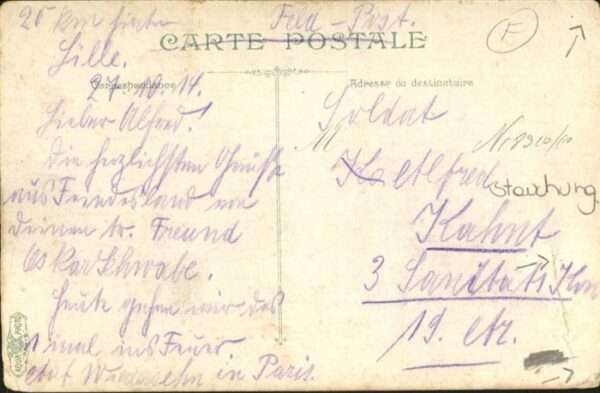 25 km hinter
Lille.
27.10.14.
Lieber Alfred!
Die herzlichsten Grüße
aus Feindesland von
deinem tr. Freund
Oskar Schwabe.
Heute gehen wir das
1 mal ins Feuer
auf Wiedersehn in Paris.
Feld-Post.
CARTE POSTALE
Correspondance
Adresse du destinataire
Soldat
Alfred
Kahnt
3 Sanitäts Kom
19. etr.
F
Stauchung